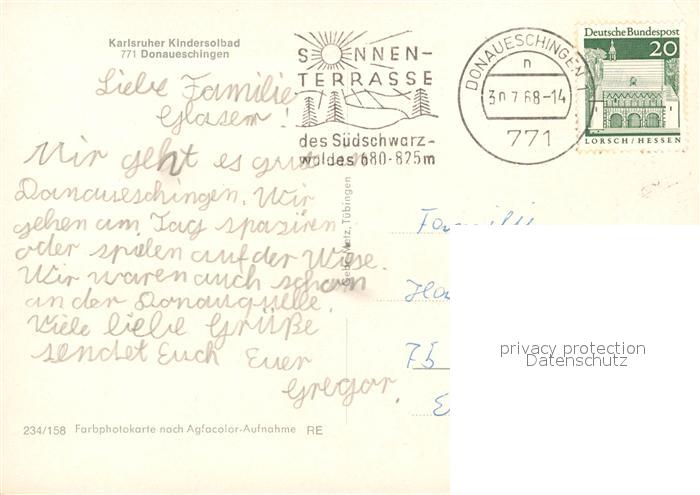 Karlsruher Kindersolbad
771 Donaueschingen
SONNEN-
TERRASSE
des Südschwarz-
waldes 680-825m
DONAUESCHINGEN 1
n
30.7.68-14
771
Deutsche Bundespost
20
LORSCH/HESSEN
Liebe Familie
Glaser!
Mir geht es gut in
Donaueschingen. Wir
gehen am Tag spaziren
oder spilen auf der Wiese.
Wir waren auch schon
an der Donauquelle.
Viele liebe Grüße
sendet Euch Euer
Gregor.
Gebr. Metz, Tübingen
Familie
75
privacy protection
Datenschutz
234/158 Farbphotokarte nach Agfacolor-Aufnahme RE